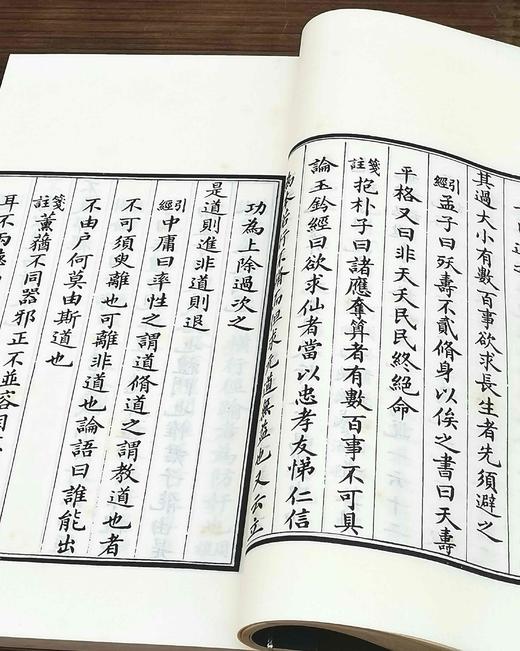 其過大小有數百事欲求長生者先須避之
引經孟子曰殀壽不貳脩身以俟之書曰天壽
平格又曰非天夭民民終絕命
箋註抱朴子曰諸應奪算者有數百事不可具
論玉鈐經曰欲求仙者當以忠孝友悌仁信
不脩而但求 道無益也又云立
功為上除過次之
是道則進非道則退
引經中庸曰率性之謂道脩道之謂教道也者
不可須臾離也可離非道也論語曰誰能出
不由戶何莫由斯道也
箋註薰蕕不同器邪正不並容
耳不兩